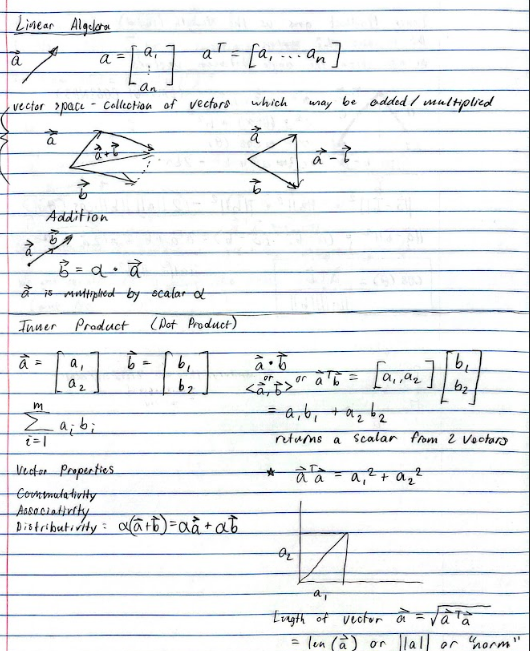 Linear Algebra
a⃗ a = [a₁ ⋮ aₙ] aᵀ = [a₁ ... aₙ]
vector space - collection of vectors which may be added/multiplied
a⃗ a⃗+b⃗ b⃗
a⃗ b⃗ a⃗ - b⃗
Addition
a⃗ b⃗
b⃗ = α · a⃗
a⃗ is multiplied by scalar α
Inner Product (Dot Product)
a⃗ = [a₁ a₂] b⃗ = [b₁ b₂]
a⃗ · b⃗
or
<a⃗,b⃗> or a⃗ᵀb⃗ = [a₁,a₂] [b₁ b₂]
= a₁b₁ + a₂b₂
returns a scalar from 2 vectors
m
∑ aᵢbᵢ
i=1
Vector Properties
Commutativity
Associativity
Distributivity: α(a⃗+b⃗)=αa⃗+αb⃗
* a⃗ᵀa⃗ = a₁² + a₂²
a₂
a₁
Length of vector a⃗ = √a⃗ᵀa⃗
= len(a⃗) or ||a|| or "norm"